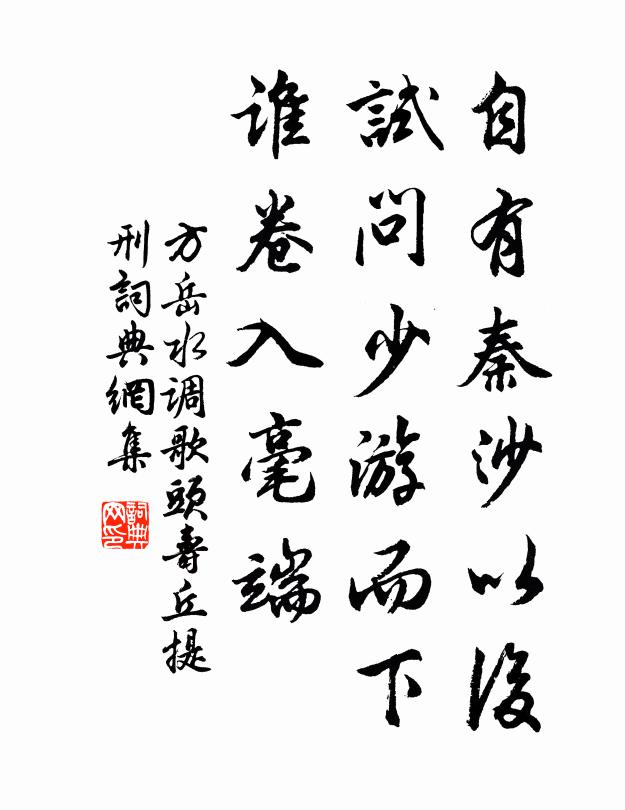 自有秦沙以後
試問少游而下
谁卷入毫端
方岳水调歌頭壽丘提
刑詞典網集
詞典网印